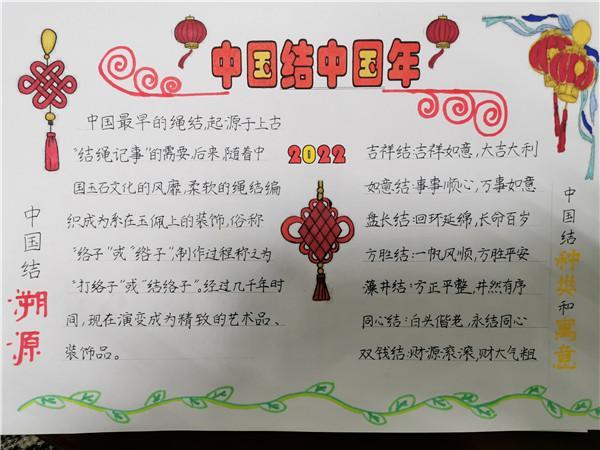 中国结中国年
2022
中国结
朔源
中国最早的绳结,起源于上古
"结绳记事"的需要,后来,随着中
国玉石文化的风靡,柔软的绳结编
织成为系在玉佩上的装饰,俗称
"络子"或"绺子",制作过程称之为
"打络子"或"结络子"。经过几千年时
间,现在演变成为精致的艺术品、
装饰品。
吉祥结:吉祥如意,大吉大利
如意结:事事顺心,万事如意
盘长结:回环延绵,长命百岁
方胜结:一帆风顺,方胜平安
藻井结:方正平整,井然有序
同心结:白头偕老,永结同心
双钱结:财源滚滚,财大气粗
中国结种类和寓意